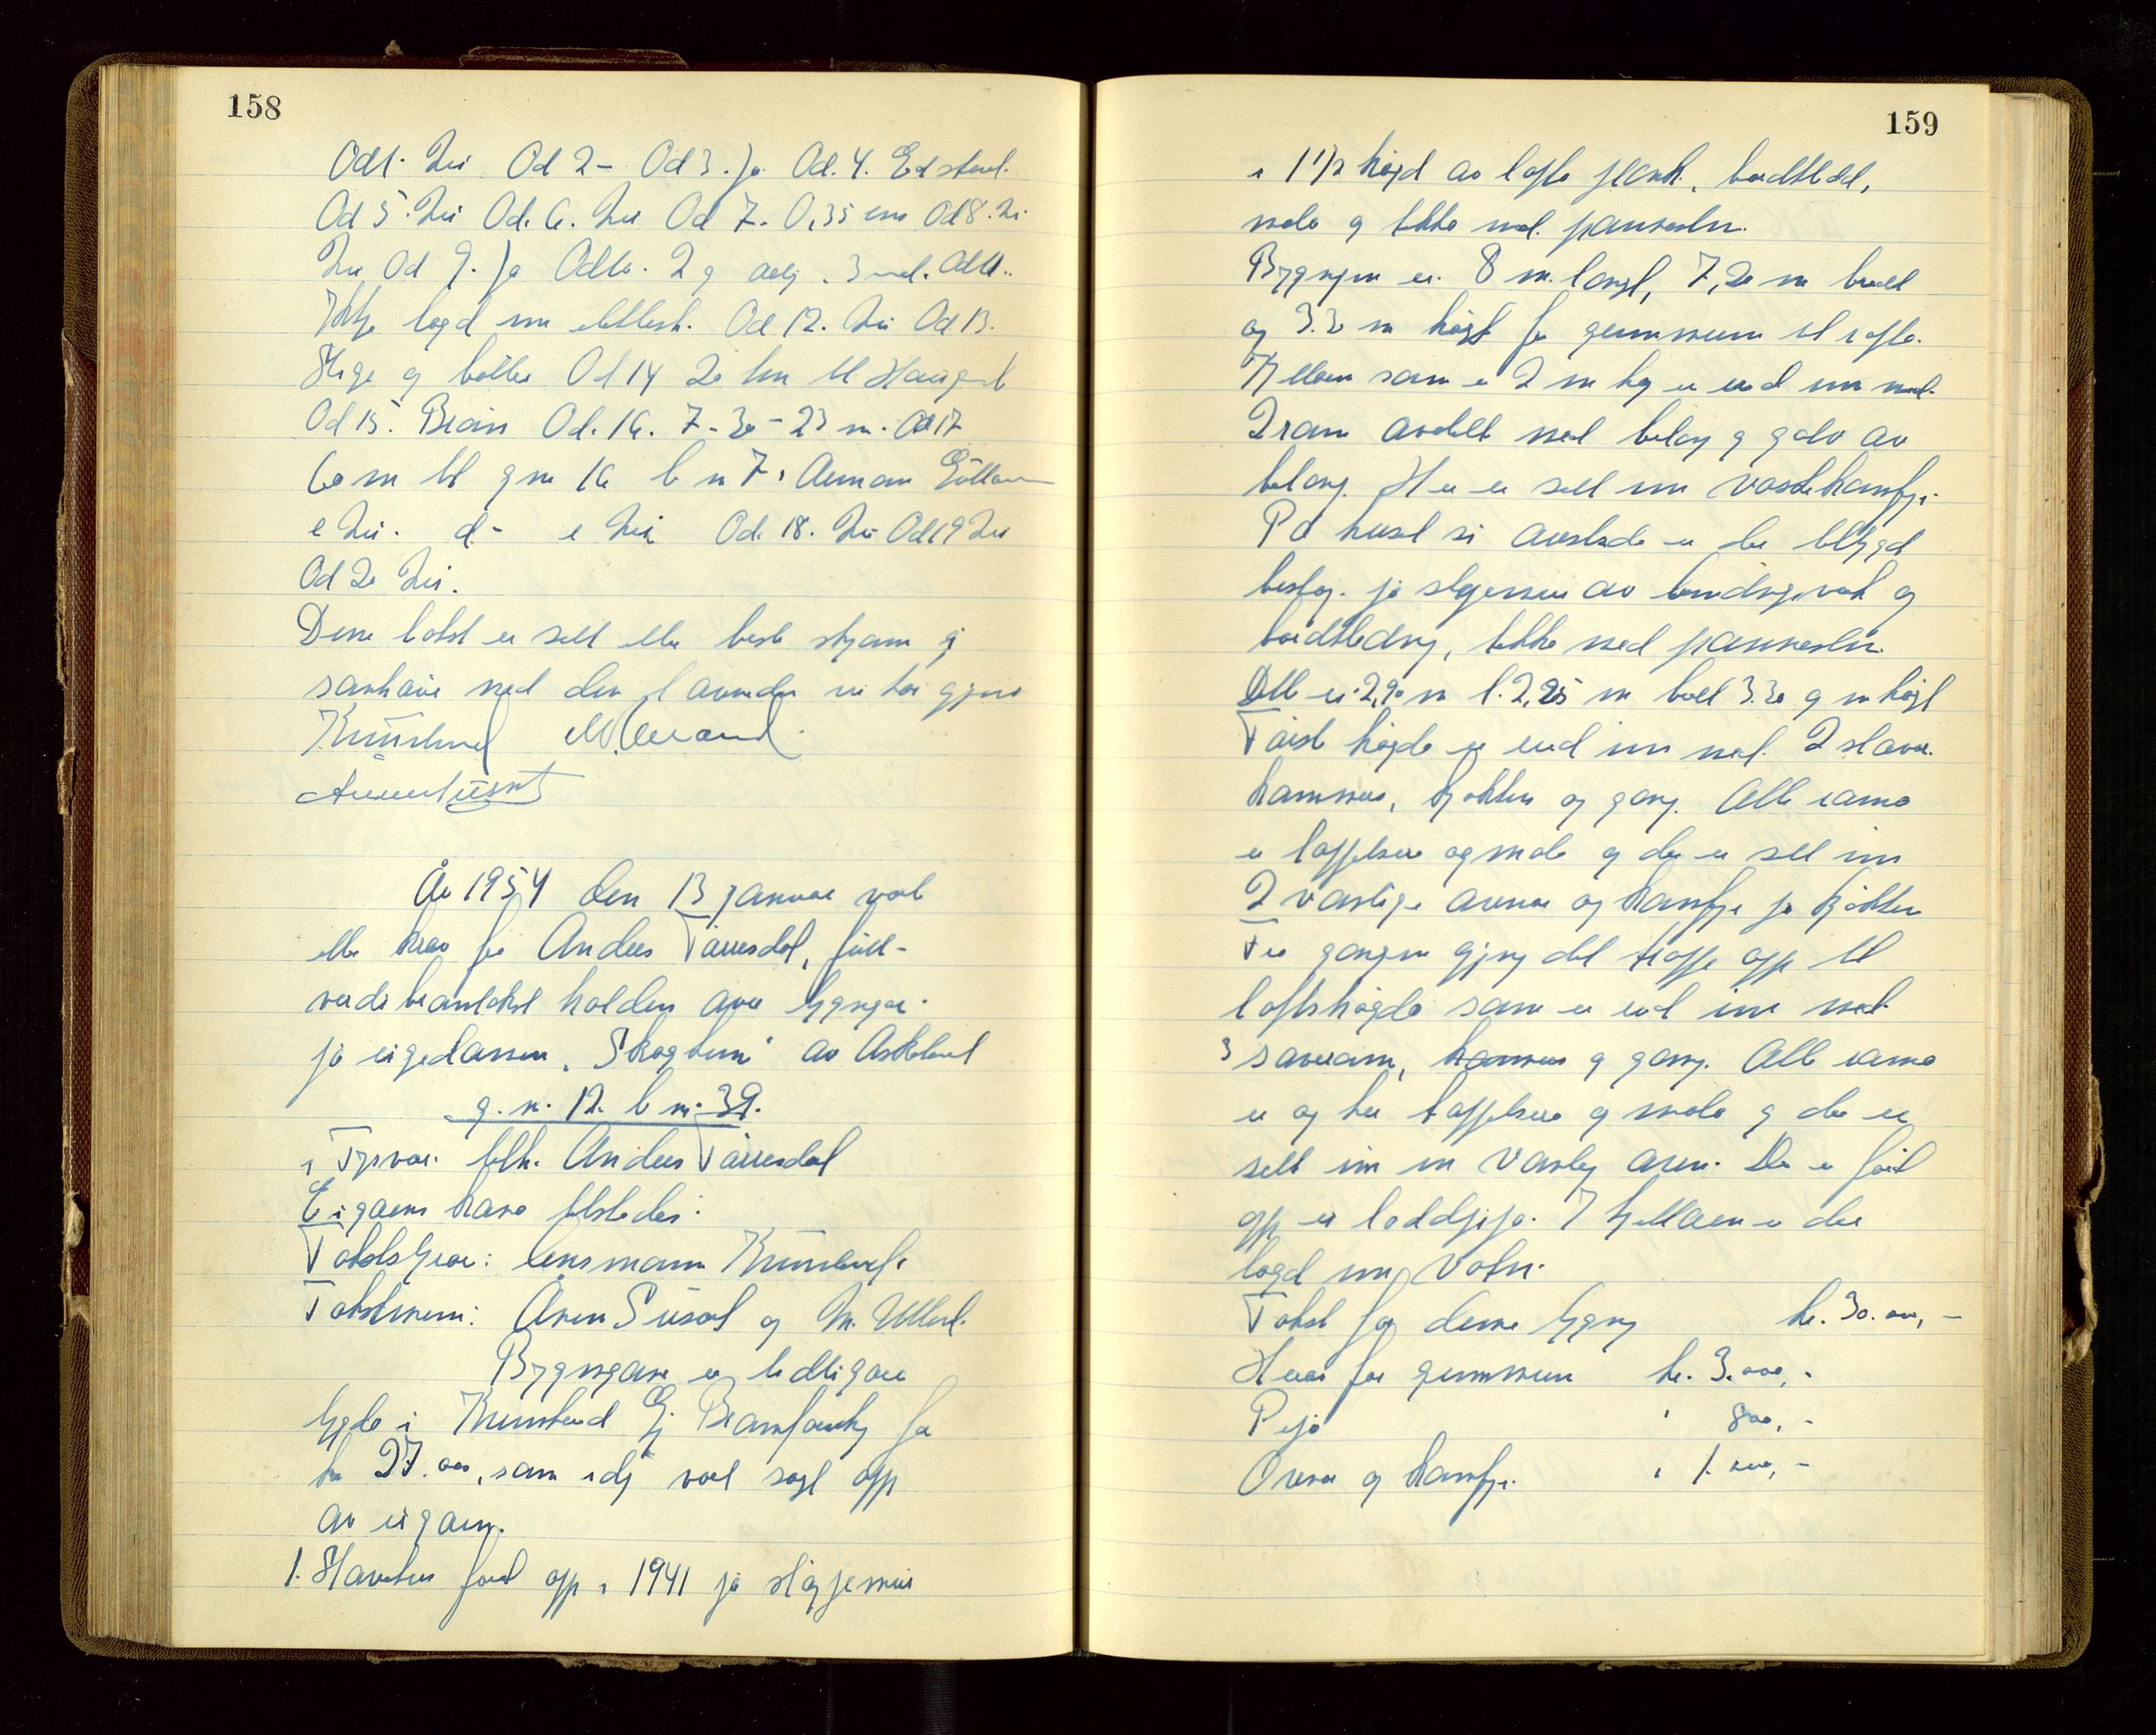 158
Od 1. Nei Od 2 - Od 3. Ja Od. 4. Ed stend.
Od 5. Nei Od. 6. Nei Od 7. 0,35 cm Od 8. Nei
Nei Od 9. Ja Od 10. 2 g årlig. 3 med. Od 11.
Ikkje lagd inn elektrisk. Od 12. Nei Od 13.
Stige og bøtter Od 14 20 km til Haugesund
Od 15. Brann Od. 16. 7 - 30 - 23 m. Od 17
60 m til g nr 16 b nr 7.
c Nei. d - e Nei Od. 18. Nei Od 19 Nei
Od 20 Nei.
Denne takst er sett etter beste skjønn og
samhøve med den
Av lensmann
År 1954 den 13 januar vart
etter krav frå Anders Tårresdal, full-
verdi branntakst halden over bygningar
på eigedommen "Skogheim" av Askeland
g. nr. 12. b nr. 39.
i Tysvær tilh. Anders Tårresdal
Eigaren krav tilstades.
Takststyrar: lensmann
Takstmenn: og
Bygningane er tidligare
trygda i Brannforsikring for
kr 27.000, som idag vart sagt opp
av eigaren.
1. Våningshus ført opp i 1941 på støypemur
159
i 1 1/2 høgd av lafta plank, bordkledd,
måla og tekke med pannestein.
Bygningen er 8 m. langt, 7,20 m breitt
og 3.30 m høgt frå grunnmuren til rafta.
Kjellaren som er 2 m høg er innd inn med
2 rom avdelt med betong og golv av
betong. Her er sett inn vaskekamfyr.
På huset si austside er det tilbygd
bislag på støypemur av bindingsverk og
bordkledning, tekke med pannestein.
Dette er 2,90 m l. 2,25 m breitt 3.30 og m høgt
Første høgda er innd inn med 2 stover
kammers, kjøkken og gang. Alle romma
er tapetsera og måla og der er sett inn
2 vanlige omnar og kamfyr på kjøkken
Frå gangen gjeng det trapp opp til
loftshøgda som er innd inn med
3 soverom, kammers og gang. Alle romma
er og her tapetsera og måla og der er
sett inn ein vanleg omn. Der er ført
opp ei loddpipe. I kjellaren er der
lagd inn vatn.
Takst for denne bygning kr. 30.000,-
Herav for grunnmuren kr. 3.000,-
Pipa " 800,-
Omnar og kamfyr " 1.000,-